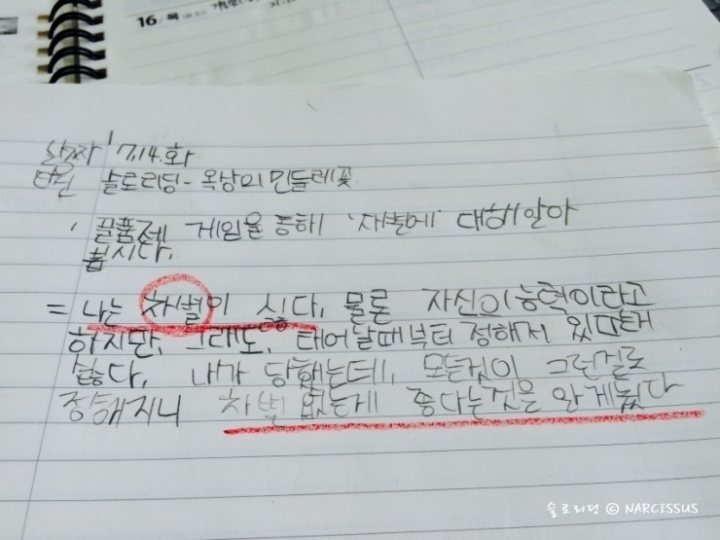 16 / 목
날짜 7.14.화
단원 슬로리딩 - 옥상의 민들레꽃
골품제 게임을 통해 '차별에' 대해 알아
봅시다.
= 나는 차별이 싫다. 물론 자신의 능력이라고
하지만, 그래도, 태어날때부터 정해져 있다는게
싫다. 내가 당했는데, 모든것이 그런걸로
정해지니 차별 없는게 좋다는것을 알게됬다
슬로리딩 © NARCISSUS